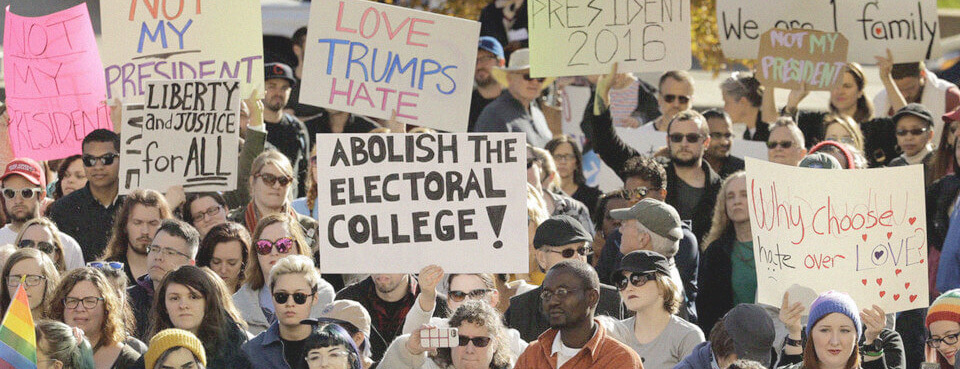 NOT
MY
PRESIDENT
NOT
MY
PRESIDENT
LIBERTY
and JUSTICE
for ALL
LOVE
TRUMPS
HATE
ABOLISH THE
ELECTORAL
COLLEGE!
PRESIDENT
2016
We are 1 family
NOT MY
PRESIDENT
Why Choose
hate over LOVE?